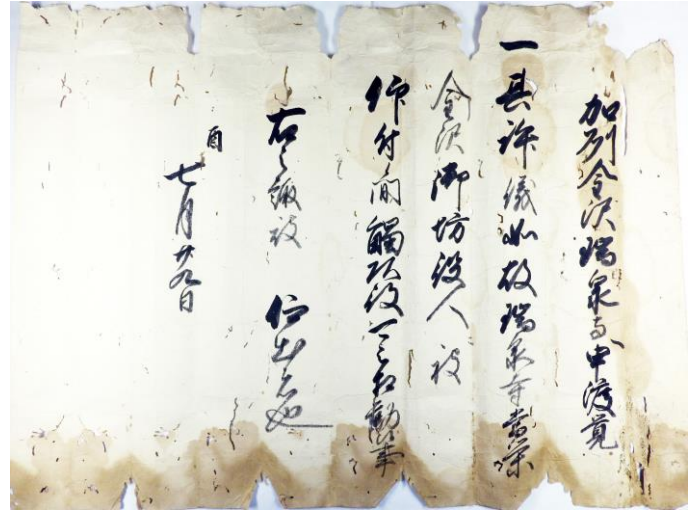 加州金沢瑞泉寺申渡覚
一其許儀如故瑞泉寺
金沢御坊役人被
仰付間觸頭役可被相勤事
右之趣被 仰出者也
酉
七月廿九日